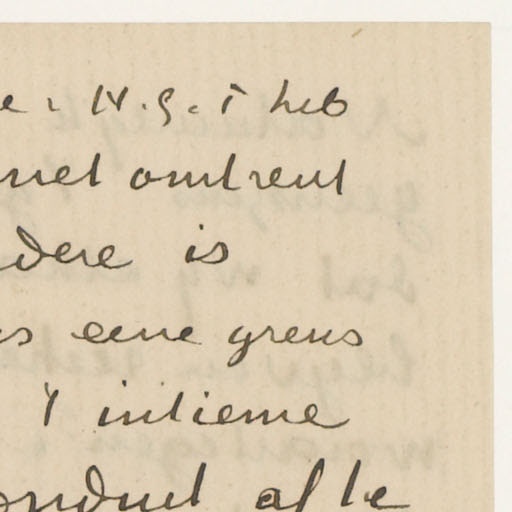 e. N.G.T heb
met omtrent
dere is
s eene grens
't intieme
onduul af te